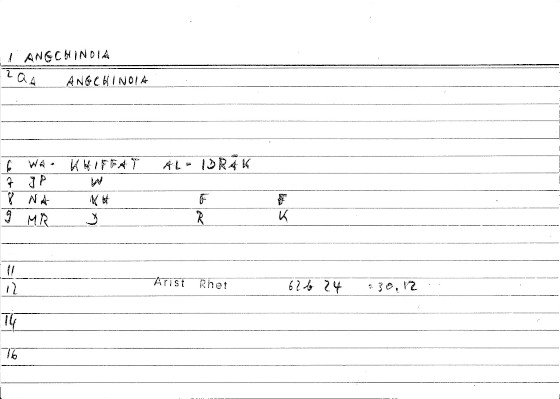 1 ANGCHINOIA
2 Qa ANGCHINOIA
6 WA- KHIFFAT AL-IDRĀK
7 JP W
8 NA KH F F
9 MR D R K
11
12 Arist Rhet 62b 24 =30,12
14
16